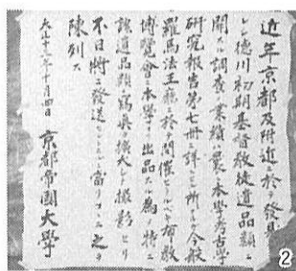 近年京都及附近ニ於テ發見セラレ
シ德川初期基督教徒遺品類ニ
關スル調査ノ業績ハ曩ニ本學考古學
研究報告第七冊ニ詳ナル所ナルカ今般
羅馬法王廳ニ於テ開催セラルヘキ布教
博覽會ニ本學ヨリ出品スル爲特ニ
該遺品類ノ寫眞ヲ擴大シ撮影セリ
不日將ニ發送セントスルニ當リコヽニ之ヲ
陳列ス
大正十三年十月四日
京都帝國大學
2